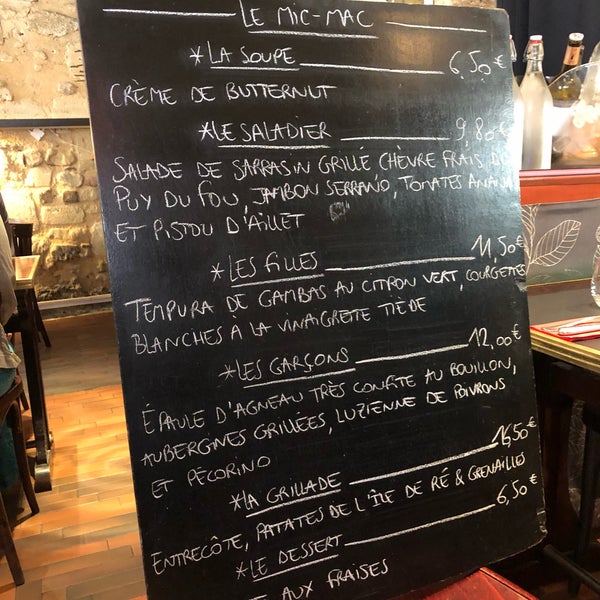 LE MIC-MAC
*LA SOUPE 6,50€
CRÈME DE BUTTERNUT
*LE SALADIER 9,80€
SALADE DE SARRASIN GRILLÉ CHÈVRE FRAIS DU
PUY DU FOU, JAMBON SERRANO, TOMATES ANANAS
ET PISTOU D'AILLET
*LES FILLES 11,50€
TEMPURA DE GAMBAS AU CITRON VERT, COURGETTES
BLANCHES A LA VINAIGRETTE TIÈDE
*LES GARÇONS 12,00€
ÉPAULE D'AGNEAU TRÈS CONFITE AU BOUILLON,
AUBERGINES GRILLÉES, LUZIENNE DE POIVRONS
ET PÉCORINO
*LA GRILLADE
ENTRECÔTE, PATATES DE L'ÎLE DE RÉ & GRENAILLES
*LE DESSERT 6,50€
AUX FRAISES